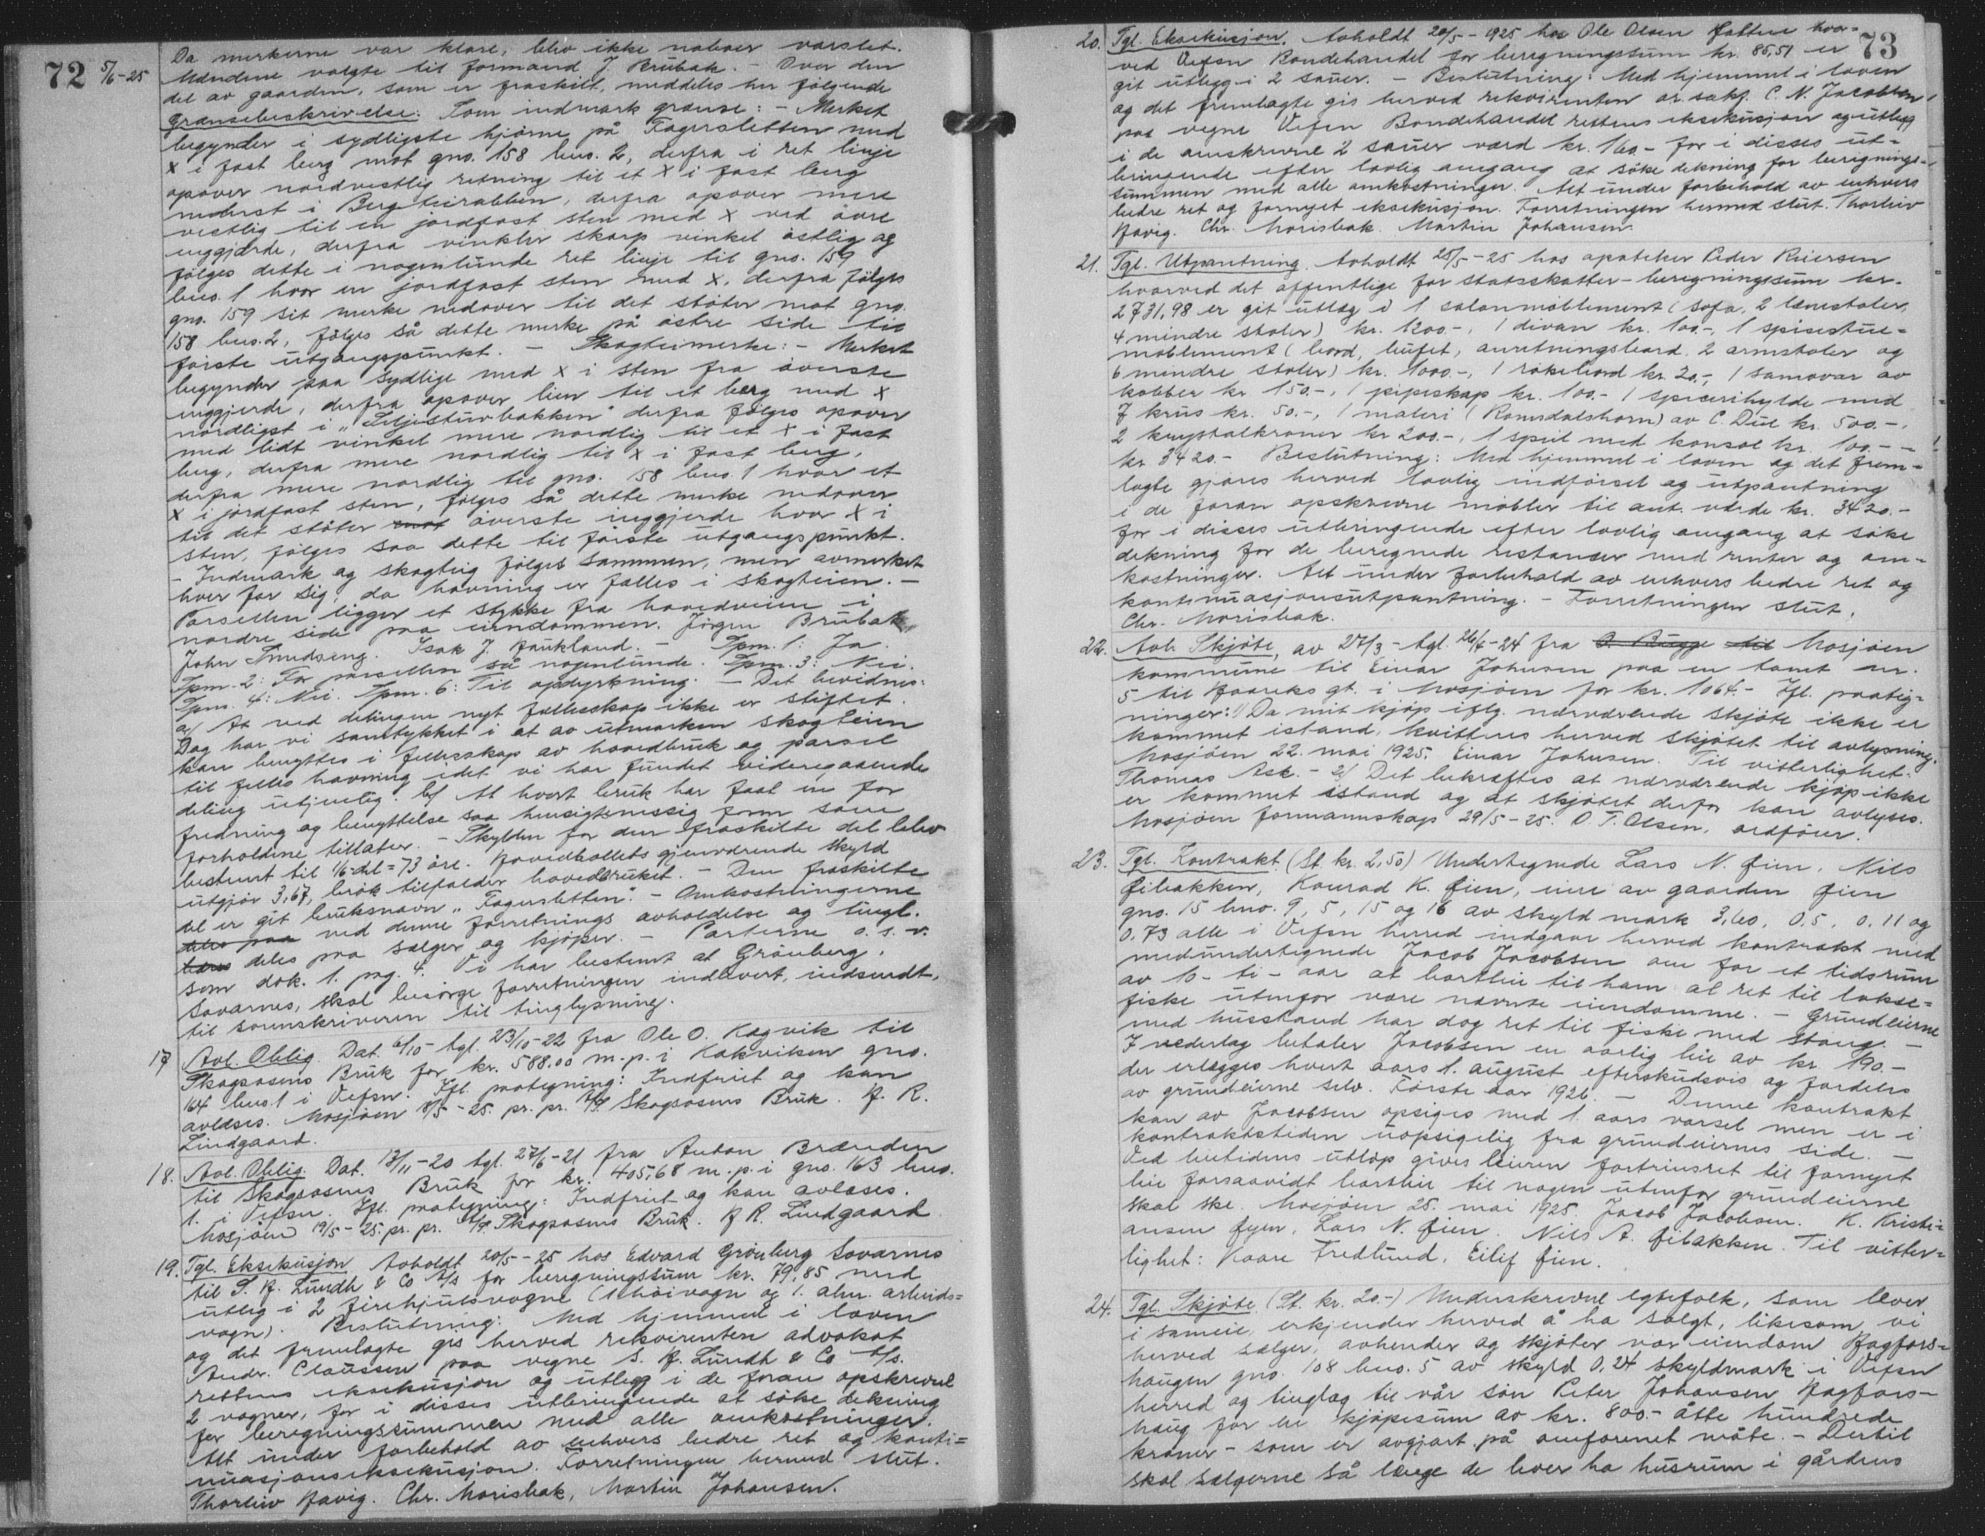 72
5/6-25
Da merkerne var klare, blev ikke naboer varslet.
Mændene valgte til formand J. Brubak. - Over den
del av gaarden, som er fraskilt, meddeles her følgende
Grænsebeskrivelse: Som indmark grænse: - Merket
begynder i sydligste hjørne på Fagersletten med
X i fast berg mot gno. 158 bno. 2, derfra i ret linje
opover nordvestlig retning til et X i fast berg
nederst i Berg, derfra opover mere
vestlig til en jordfast sten med X ved övre
inggjærde, derfra vinkler skarp vinkel östlig og
følges dette i nogenlunde ret linje til gno. 159
bno. 1 hvor en jordfast sten med X, derfra følges
gno. 159 sit merke nedover til det støter mot gno.
158 bno. 2, følges så dette merke på østre side til
første utgangspunkt. - Skogteimerke: - Merket
begynder paa sydlige med X i sten fra øverste
inggjerde, derfra opover lien til et berg med X
nordligst i "Liljesturbakken" derfra følges opover
med lidt vinkel mere nordlig til et X i fast
berg, derfra mere nordlig til X i fast berg,
derfra mere nordlig til gno. 158 bno 1 hvor et
X i jordfast sten, følges så dette merke nedover
til det støter mot øverste inggjerde hvor X i
sten, følges saa dette til første utgangspunkt.
- Indmark og skogteig følges sammen, men avmerket
hver for sig, da havning er fælles i skogteien. -
Parsellen ligger et stykke fra hovedveien i
nordre side paa eiendommen. Jörgen Brubak,
John Smedseng. Isak J. Aukland. - Spm. 1: Ja.
Spm. 2: For parsellen så nogenlunde. Spm. 3: Nei.
Spm. 4: Nei. Spm. 6: Til opdyrkning. - Det bevidnes:
a/ At ved delingen nyt fællesskap ikke er stiftet.
Dog har vi samtykket i at av utmarken skogteien
kan benyttes i fellesskap av hovedbruk og parsel
til felles havning idet vi har fundet videregaaende
deling utjenelig. b/ At hvert bruk har faat en for
fredning og benyttelse saa hensigtsmessig form som
forholdene tillater. - Skylden for den fraskilte del blev
bestemt til 1/6-del = 73 øre. Hovedbollets gjenværende skyld
utgjør 3,67, brøk tilfalder hovedbruket. - Den fraskilte
del er git bruksnavn "Fagersletten". - Omkostningerne
deles paa ved denne forretnings avholdelse og tingl.
bæres deles paa sælger og kjøper. - Parterne o. s. v.
som dok. 1. pag. 4. Vi har bestemt at Grönberg,
Sovarnes, skal besørge forretningen indlevert, indsendt,
til sorenskriveren til tinglysning.
17 Avl. Oblig. Dat. 6/10 - tgl. 23/10-22 fra Ole O. Kagvik til
Skogsosens Bruk for kr. 588.00 m. p. i Kakviken gno.
164 bno 1 i Vefsn. Ifl. paategning: Indfriet og kan
avlæses. Mosjøen 19/5-25. pr. pr. A/S Skogsosens Bruk. H. R.
Lindgaard.
18. Avl. Oblig. Dat. 13/11-20 tgl. 27/6-21 fra Anton Brænden
til Skogsosens Bruk for kr. 405,68 m. p. i gno. 163 bno.
1. i Vefsn. Ifl. paategning: Indfriet og kan avlæses.
Mosjøen 19/5-25. pr. pr. A/S Skogsosens Bruk. H. R. Lindgaard
19. Tgl. Eksekusjon Avholdt 20/5-25 hos Edvard Grönberg Sovarnes
til S. H. Lundh & Co A/S for beregningssum kr. 79,85 med
utleg i 2 firehjulsvogne (1 høivogn og 1. alm. arbeids=
vogn). Beslutning: Med hjemmel i loven
og det fremlagte gis herved rekvirenten advokat
Andr. Claussen paa vegne S. H. Lundh & Co A/S.
rettens eksekusjon og utlegg i de foran opskrevne
2 vogner, for i disses utbringende at søke dekning
for beregningssummen med alle omkostninger.
Alt under forbehold av enhvers bedre ret og konti=
nuasjonseksekusjon. Forretningen hermed slut.
Thorleiv Havig. Chr. Morisbak, Martin Johansen.
73
20. Tgl. Eksekusjon. Avholdt 20/5-1925 hos Ole Olsen Halten hvor-
ved Vefsn Bondehandel for beregningssum kr. 85,51 er
git utlegg i 2 sauer. - Beslutning: Med hjemmel i loven
og det fremlagte gis herved rekvirenten or. sakf. C. N. Jacobsen
paa vegne Vefsn Bondehandel rettens eksekusjon og utlegg
i de omskrevne 2 sauer værd kr. 160.- for i disses ut-
bringende efter lovlig omgang at søke dekning for beregnings-
summen med alle omkostninger. Alt under forbehold av enhvers
bedre ret og fornyet eksekusjon. Forretningen hermed slut. Thorleiv
Havig. Chr. Morisbak. Martin Johansen.
21. Tgl. Utpantning. Avholdt 25/5-25 hos apoteker Peder Reiersen
hvorved det offentlige for statsskatter - beregningssum kr.
2731,98 er git utlæg i 1 salonmøblement (sofa, 2 lænestoler,
4 mindre stoler) kr. 1200.-, 1 divan kr. 100.-, 1 spisestue=
møblement (bord, bufet, anretningsbord. 2 armstoler og
6 mindre stoler) kr. 1000.-, 1 røkebord kr. 20.-, 1 samovar av
kobber kr 150.-, 1 pipeskap kr. 100.- 1 spicerihylde med
7 krus kr. 50.-, 1 maleri (Romsdalshorn) av C. Due kr. 500.-,
2 krystalkroner kr 200.-, 1 speil med konsol kr. 100.- -
kr. 3420.- Beslutning: Med hjemmel i loven og det frem=
lagte gjøres herved lovlig indførsel og utpantning
i de foran opskrevne møbler til ant. værde kr. 3420.-
for i disses utbringende efter lovlig omgang at søke
dekning for de beregnede restancer med renter og om=
kostninger. Alt under forbehold av enhvers bedre ret og
kontinuasjonsutpantning. - Forretningen slut.
Chr. Morisbak.
22. Avl. Skjøte, av 27/3 - tgl. 26/6-24 fra O. Bugge til Mosjøen
kommune til Einar Johnsen paa en tomt nr.
5 til Haareks gt. i Mosjøen for kr. 1064.- Ifl. paateg-
ninger: 1/ Da mit kjøp iflg. nærværende skjøte ikke er
kommet istand, kvitteres herved skjøtet til avlysning.
Mosjøen 22. mai 1925. Einar Johnsen. Til vitterlighet:
Thomas Ask. - 2/ Det bekræftes at nærværende kjøp ikke
er kommet istand og at skjøtet derfor kan avlyses.
Mosjøen formannskap 29/5-25. O. T. Olsen, ordfører.
23. Tgl. Kontrakt (St. kr. 2,50) Undertegnede Lars N. Øien, Nils
Øibakken, Konrad K. Øien, eiere av gaarden Øien
gno. 15 bno. 9, 5, 15 og 16 av skyld mark 3,60, 0,5, 0,11 og
0.73 alle i Vefsn herred indgaar herved kontrakt med
medundertegnede Jacob Jacobsen om for et tidsrum
av 10 - ti - aar at bortleie til ham al ret til lakse=
fiske utenfor vore nævnte eiendomme. - Grundeierne
med husstand har dog ret til fiske med stang. -
I vederlag betaler Jacobsen en aarlig leie av kr. 190.-
der erlægges hvert aars 1. august efterskudsvis og fordeles
av grundeierne selv. Første aar 1926. - Denne kontrakt
kan av Jacobsen opsiges med 1. aars varsel men er i
kontraktstiden uopsigelig fra grundeiernes side. -
Ved leietidens utløp gives leieren fortrinsret til fornyet
leie forsaavidt bortleie til nogen utenfor grundeierne
skal ske. Mosjøen 25. mai 1925. Jacob Jacobsen. K. Kristi-
ansen Øyen. Lars N. Øien. Nils A. Øibakken. Til vitter=
lighet: Kaare Fredlund, Eilif Øien.
24. Tgl. Skjøte (St. kr. 20.-) Underskrevne egtefolk, som lever
i sameie, erkjender herved å ha solgt, likesom vi
herved selger, avhender og skjøter vor eiendom Hagfors=
haugen gno. 108 bno. 5 av skyld 0,24 skyldmark i Vefsn
herred og tinglag til vår søn Peter Johansen Hagfors-
haug for en kjøpesum av kr. 800.- åtte hundrede
kroner - som er avgjort på omforenet måte. - Dertil
skal selgerne så lenge de lever ha husrum i gårdens